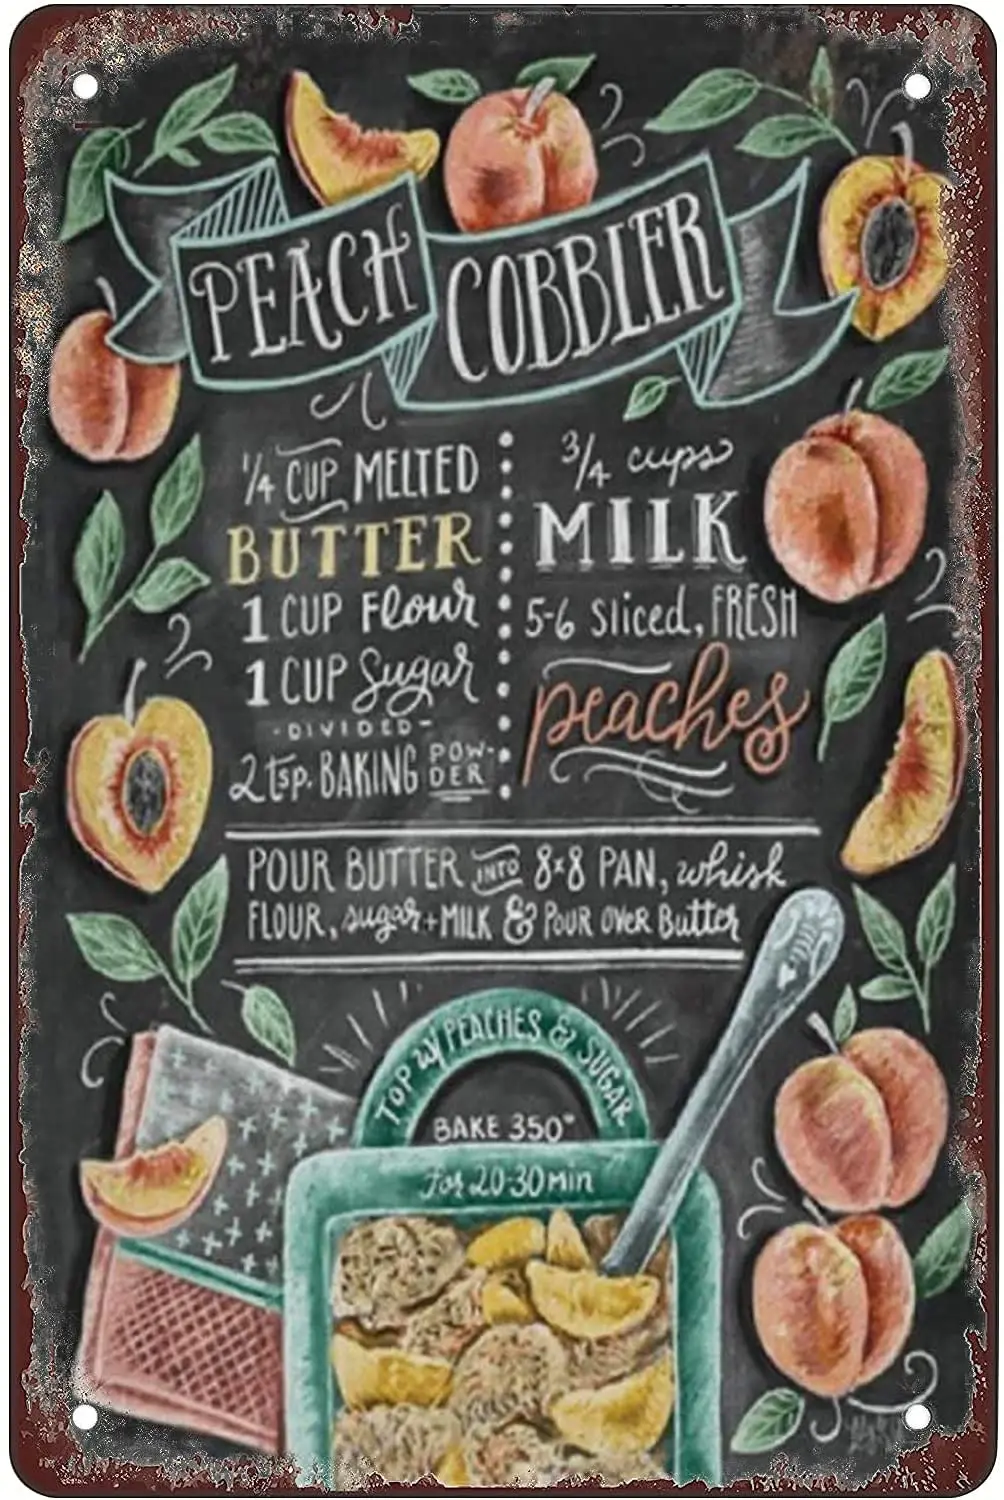 PEACH COBBLER
1/4 CUP MELTED
BUTTER
1 CUP Flour
1 CUP Sugar
-DIVIDED-
2 tsp. BAKING POW-
DER
3/4 cups
MILK
5-6 Sliced, FRESH
peaches
POUR BUTTER INTO 8x8 PAN, whisk
FLOUR, sugar + MILK & POUR OVER Butter
TOP w/ PEACHES & SUGAR
BAKE 350°
For 20-30 min